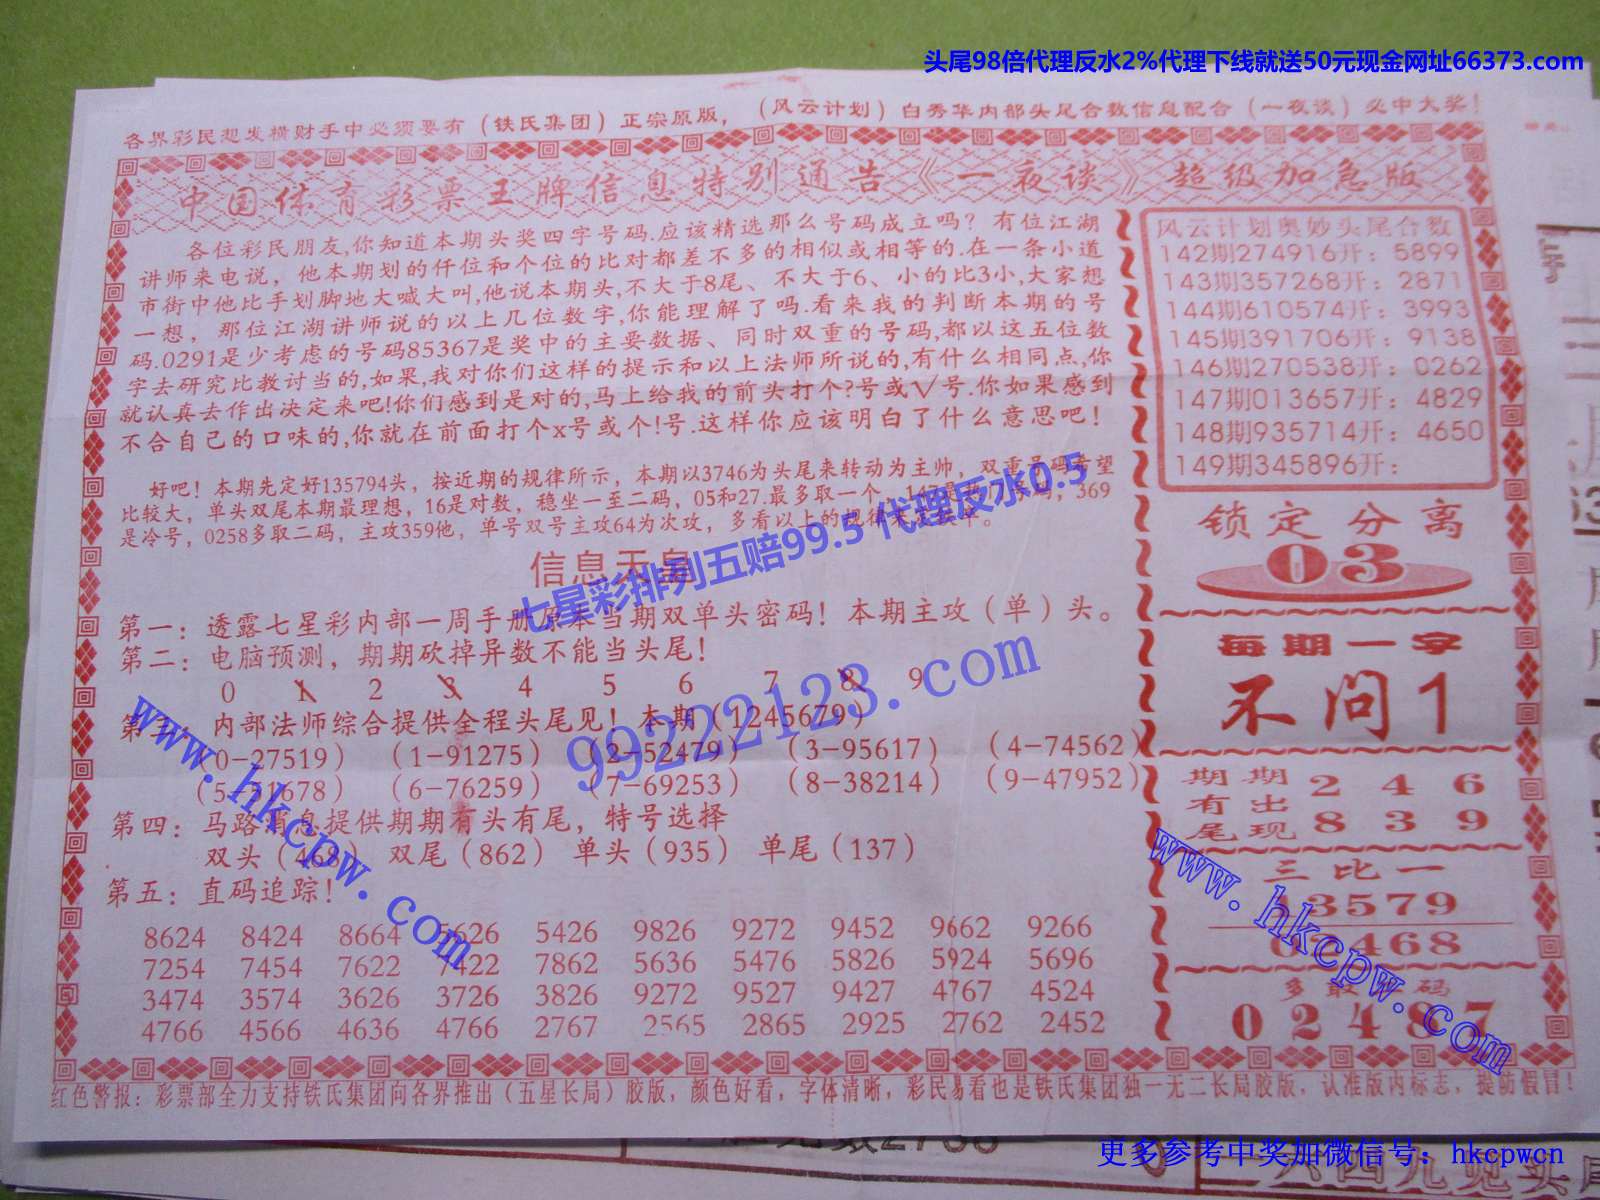 头尾98倍代理反水2%代理下线就送50元现金网址66373.com
各界彩民想发横财手中必须要有（铁氏集团）正宗原版，（风云计划）白秀华内部头尾合数信息配合（一夜谈）必中大奖！
中国体育彩票王牌信息特别通告《一夜谈》超级加急版
各位彩民朋友,你知道本期头奖四字号码.应该精选那么号码成立吗？有位江湖
讲师来电说，他本期划的仟位和个位的比对都差不多的相似或相等的.在一条小道
市街中他比手划脚地大喊大叫,他说本期头,不大于8尾、不大于6、小的比3小,大家想
一想，那位江湖讲师说的以上几位数字,你能理解了吗.看来我的判断本期的号
码.0291是少考虑的号码85367是奖中的主要数据、同时双重的号码,都以这五位数
字去研究比教讨当的,如果,我对你们这样的提示和以上法师所说的,有什么相同点,你
就认真去作出决定来吧!你们感到是对的,马上给我的前头打个?号或√号.你如果感到
不合自己的口味的,你就在前面打个x号或个!号.这样你应该明白了什么意思吧！
好吧！本期先定好135794头，按近期的规律所示，本期以3746为头尾来转动为主帅，双重号码希望
比较大，单头双尾本期最理想，16是对数，稳坐一至二码，05和27.最多取一个，147是热门号码，369
是冷号，0258多取二码，主攻359他，单号双号主攻64为次攻，多看以上的规律来定线率。
信息天皇
七星彩排列五赔99.5 代理反水0.5
第一：透露七星彩内部一周手册原本当期双单头密码！本期主攻（单）头。
第二：电脑预测，期期砍掉异数不能当头尾！
0 1 2 3 4 5 6 7 8 9
99222123.com
第三：内部法师综合提供全程头尾见！本期（1245679）
（0-27519）（1-91275）（2-52479）（3-95617）（4-74562）
（5-51678）（6-76259）（7-69253）（8-38214）（9-47952）
第四：马路消息提供期期有头有尾，特号选择
双头（468）双尾（862）单头（935）单尾（137）
www.hkcpw.com
第五：直码追踪！
8624 8424 8664 6626 5426 9826 9272 9452 9662 9266
7254 7454 7622 7422 7862 5636 5476 5826 5924 5696
3474 3574 3626 3726 3826 9272 9527 9427 4767 4524
4766 4566 4636 4766 2767 2565 2865 2925 2762 2452
风云计划奥妙头尾合数
142期274916开：5899
143期357268开：2871
144期610574开：3993
145期391706开：9138
146期270538开：0262
147期013657开：4829
148期935714开：4650
149期345896开：
锁定分离
03
每期一字
不问1
期期 2 4 6
有出
尾现 8 3 9
三比一
13579
02468
www.hkcpw.com
多取二码
02487
红色警报：彩票部全力支持铁氏集团向各界推出（五星长局）胶版，颜色好看，字体清晰，彩民易看也是铁氏集团独一无二长局胶版，认准版内标志，提防假冒！
更多参考中奖加微信号：hkcpwcn
二六四九见头尾